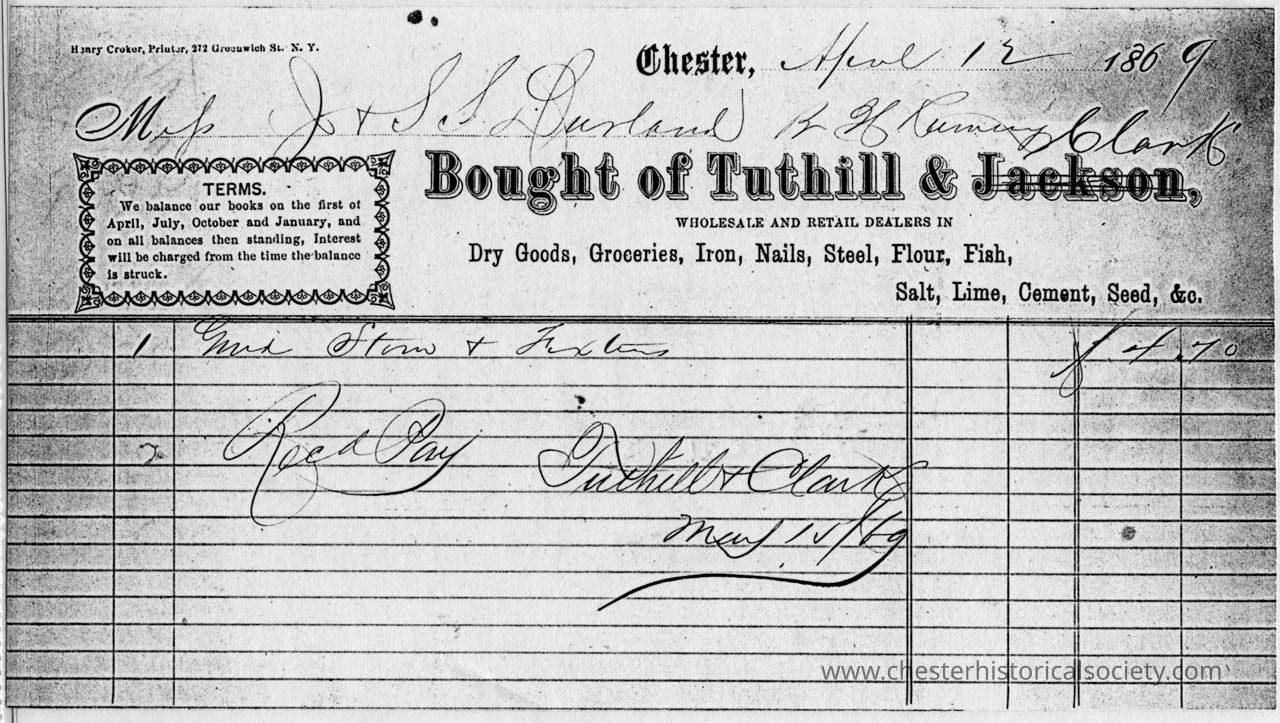 Henry Croker, Printer, 272 Greenwich St. N. Y.
Chester, April 12 1869
Mess J & S S Durland
Clark
Bought of Tuthill & Jackson,
WHOLESALE AND RETAIL DEALERS IN
Dry Goods, Groceries, Iron, Nails, Steel, Flour, Fish,
Salt, Lime, Cement, Seed, &c.
TERMS.
We balance our books on the first of
April, July, October and January, and
on all balances then standing, Interest
will be charged from the time the balance
is struck.
1 Grind Stone & Fixtures $ 4.70
Recd Pay Tuthill & Clark
May 15/69
www.chesterhistoricalsociety.com